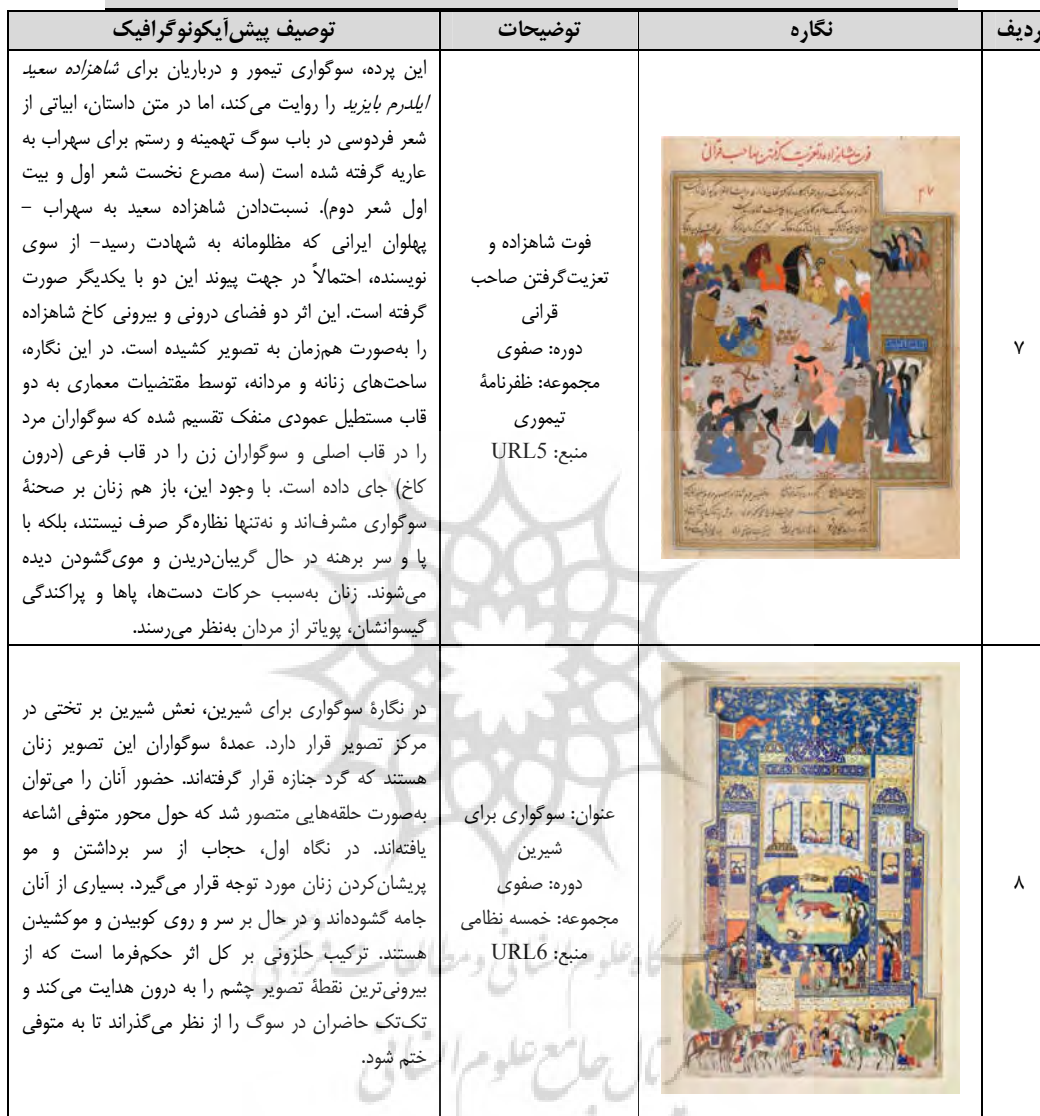 ردیف
نگاره
توضیحات
توصیف پیش‌آیکونوگرافیک
۷
فوت شاهزاده و
تعزیت‌گرفتن صاحب
قرانی
دوره: صفوی
مجموعه: ظفرنامهٔ
تیموری
منبع: URL5
این پرده، سوگواری تیمور و درباریان برای شاهزاده سعید
ایلدرم بایزید را روایت می‌کند، اما در متن داستان، ابیاتی از
شعر فردوسی در باب سوگ تهمینه و رستم برای سهراب به
عاریه گرفته شده است (سه مصرع نخست شعر اول و بیت
اول شعر دوم). نسبت‌دادن شاهزاده سعید به سهراب –
پهلوان ایرانی که مظلومانه به شهادت رسید– از سوی
نویسنده، احتمالاً در جهت پیوند این دو با یکدیگر صورت
گرفته است. این اثر دو فضای درونی و بیرونی کاخ شاهزاده
را به‌صورت هم‌زمان به تصویر کشیده است. در این نگاره،
ساحت‌های زنانه و مردانه، توسط مقتضیات معماری به دو
قاب مستطیل عمودی منفک تقسیم شده که سوگواران مرد
را در قاب اصلی و سوگواران زن را در قاب فرعی (درون
کاخ) جای داده است. با وجود این، باز هم زنان بر صحنهٔ
سوگواری مشرف‌اند و نه‌تنها نظاره‌گر صرف نیستند، بلکه با
پا و سر برهنه در حال گریبان‌دریدن و موی‌گشودن دیده
می‌شوند. زنان به‌سبب حرکات دست‌ها، پاها و پراکندگی
گیسوانشان، پویاتر از مردان به‌نظر می‌رسند.
۸
عنوان: سوگواری برای
شیرین
دوره: صفوی
مجموعه: خمسه نظامی
منبع: URL6
در نگارهٔ سوگواری برای شیرین، نعش شیرین بر تختی در
مرکز تصویر قرار دارد. عمدهٔ سوگواران این تصویر زنان
هستند که گرد جنازه قرار گرفته‌اند. حضور آنان را می‌توان
به‌صورت حلقه‌هایی متصور شد که حول محور متوفی اشاعه
یافته‌اند. در نگاه اول، حجاب از سر برداشتن و مو
پریشان‌کردن زنان مورد توجه قرار می‌گیرد. بسیاری از آنان
جامه گشوده‌اند و در حال بر سر و روی کوبیدن و موکشیدن
هستند. ترکیب حلزونی بر کل اثر حکم‌فرما است که از
بیرونی‌ترین نقطهٔ تصویر چشم را به درون هدایت می‌کند و
تک‌تک حاضران در سوگ را از نظر می‌گذراند تا به متوفی
ختم شود.